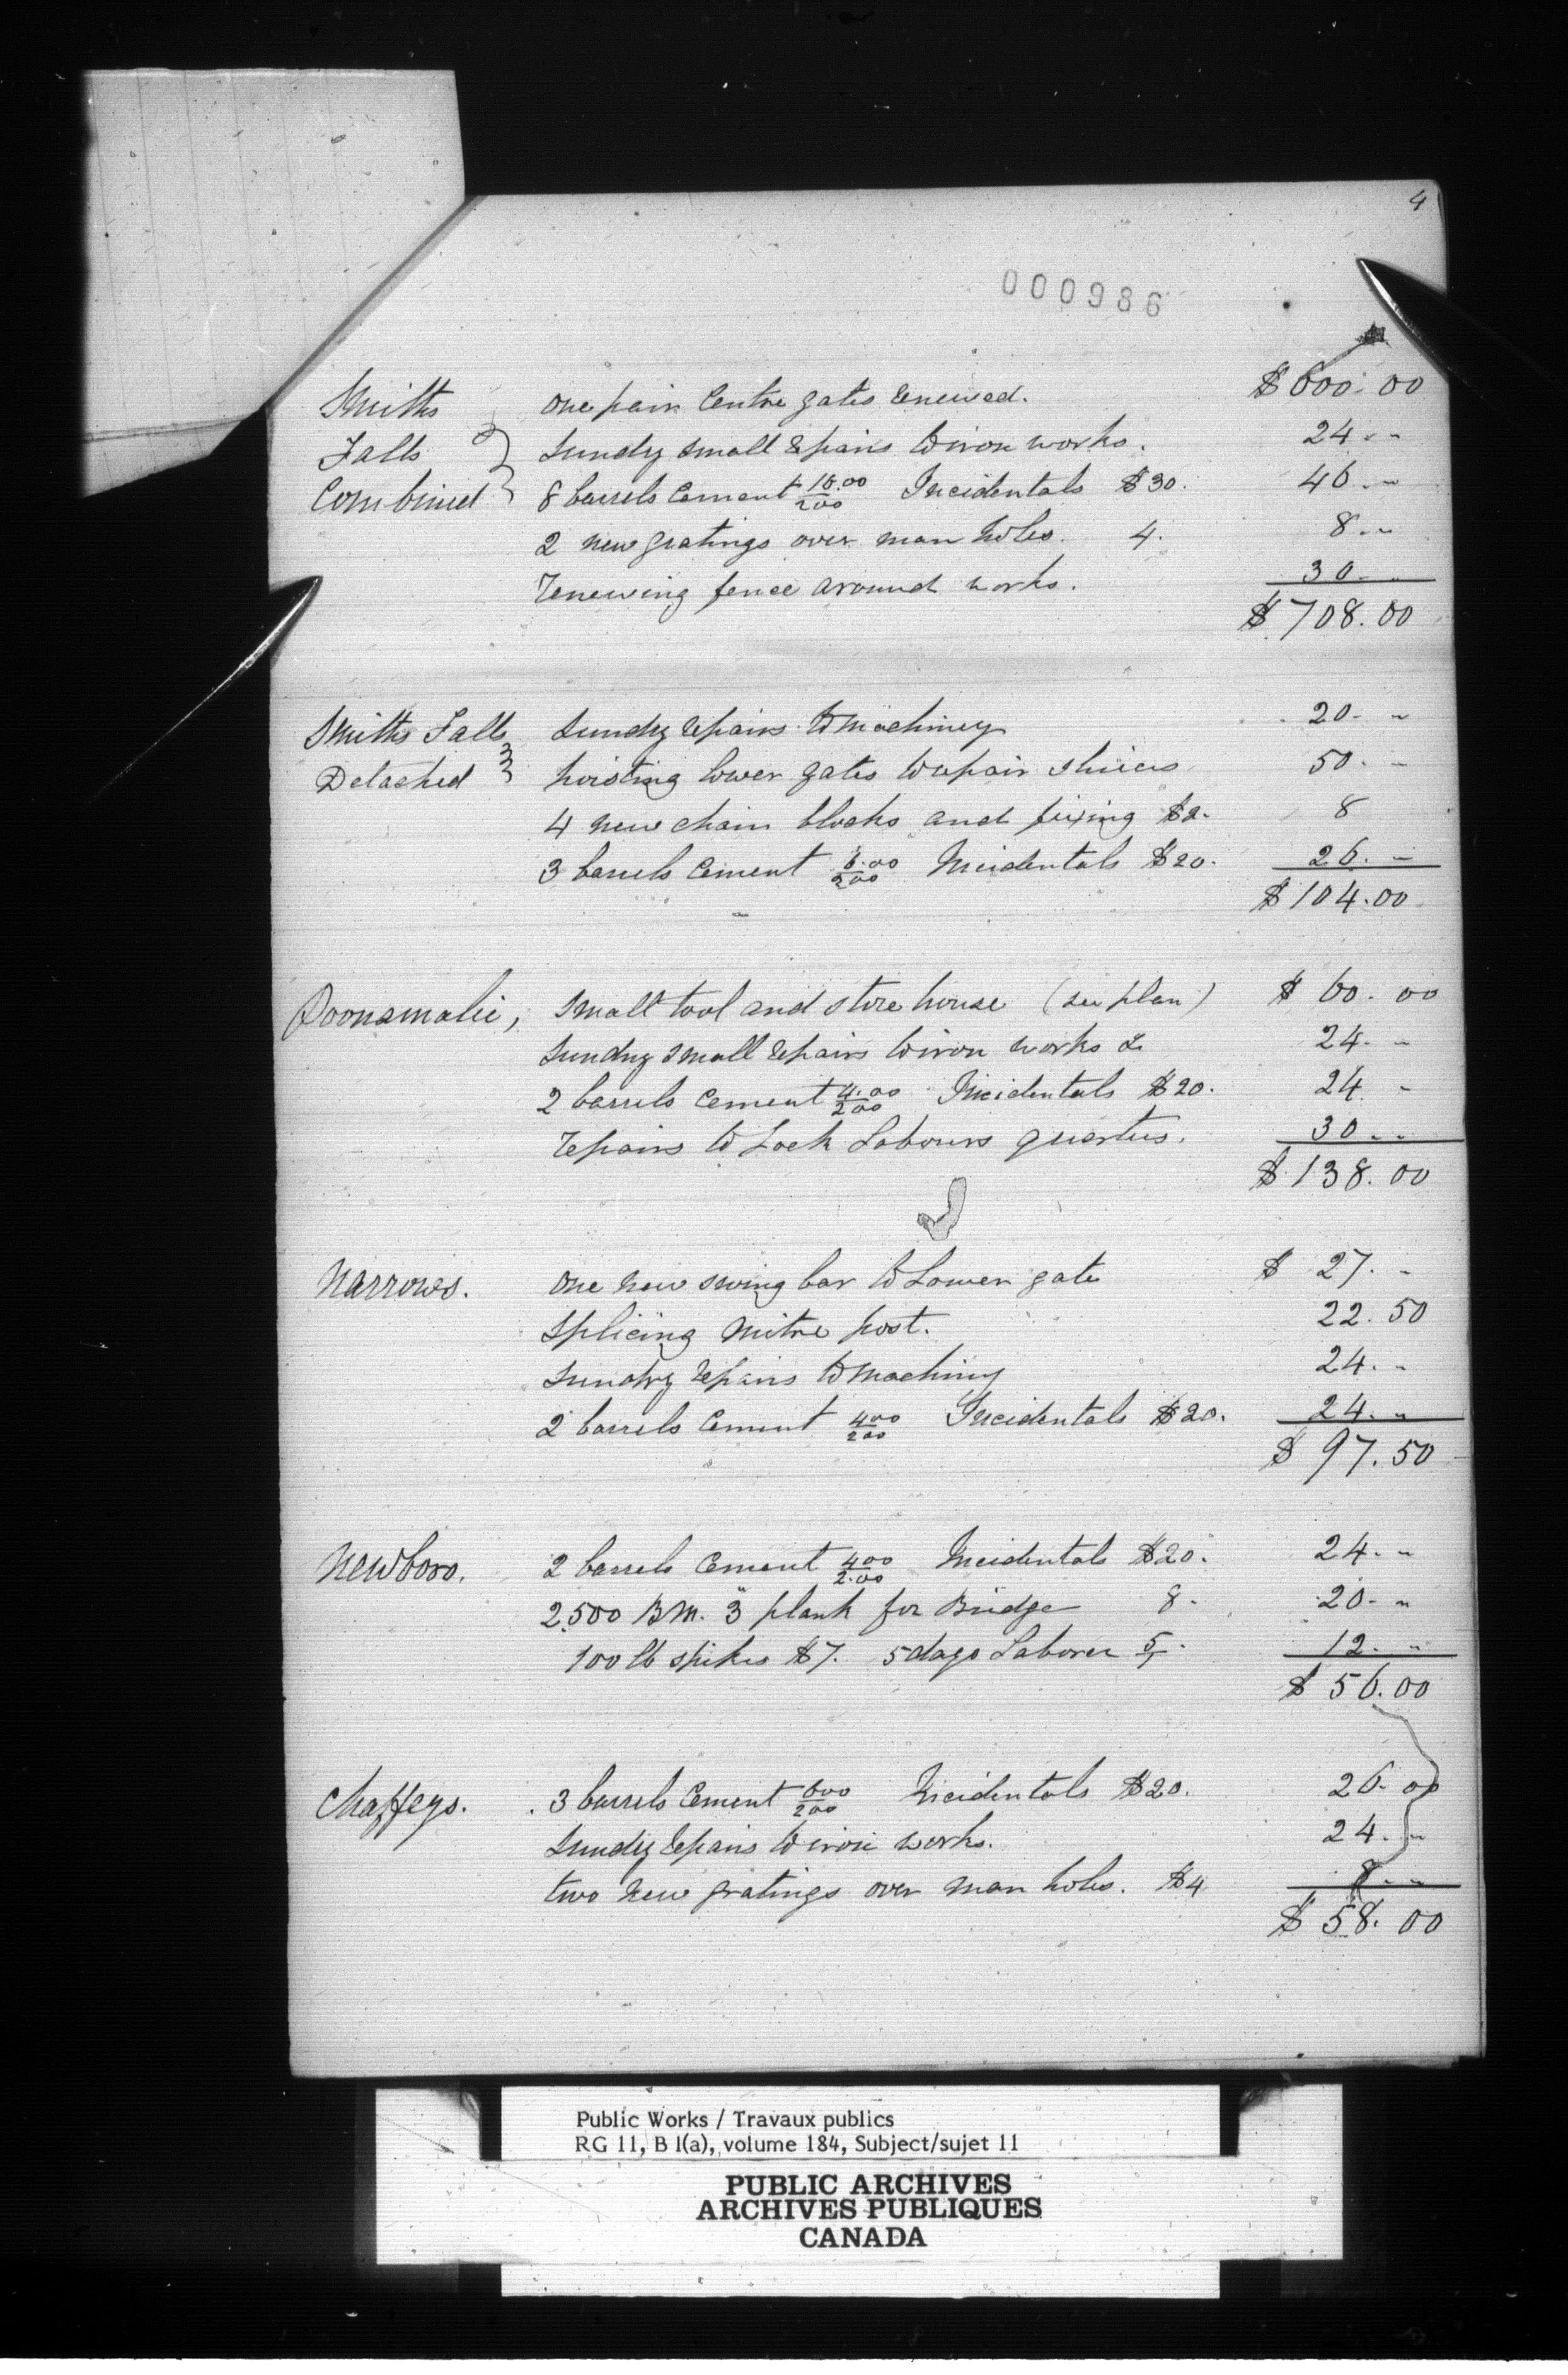 4
000986
Smiths one pair Centre gates renewed. $600.00
Falls Sundry small repairs to iron works. 24 "
Combined 8 barrels Cement 16.00/2.00 Incidentals $30. 46 "
2 new gratings over man holes. 4. 8 "
renewing fence around works. 30 "
$708.00
Smiths Falls Sundry repairs to machinery 20. "
Detached hoisting lower gates to repair sluices 50. "
4 new chain blocks and fixing $2. 8
3 barrels Cement 6.00/2.00 Incidentals $20. 26. "
$104.00
Poonamalie, Small tool and store house (see plan) $60.00
Sundry small repairs to iron works & 24. "
2 barrels Cement 4.00/2.00 Incidentals $20. 24 "
repairs to Lock Labourers quarters. 30 "
$138.00
Narrows. One new swing bar to Lower gate $ 27. "
Splicing Mitre post. 22.50
Sundry repairs to machinery 24. "
2 barrels Cement 4.00/2.00 Incidentals $20. 24. "
$97.50
Newboro. 2 barrels Cement 4.00/2.00 Incidentals $20. 24. "
2,500 B.M. 3" plank for Bridge 8. 20. "
100 lb spikes $7. 5 days Laborer 5. 12. "
$56.00
Chaffeys. 3 barrels Cement 6.00/2.00 Incidentals $20. 26.00
Sundry repairs to iron works. 24. "
two new gratings over man holes. $4 8. "
$58.00
Public Works / Travaux publics
RG 11, B 1(a), volume 184, Subject/sujet 11
PUBLIC ARCHIVES
ARCHIVES PUBLIQUES
CANADA